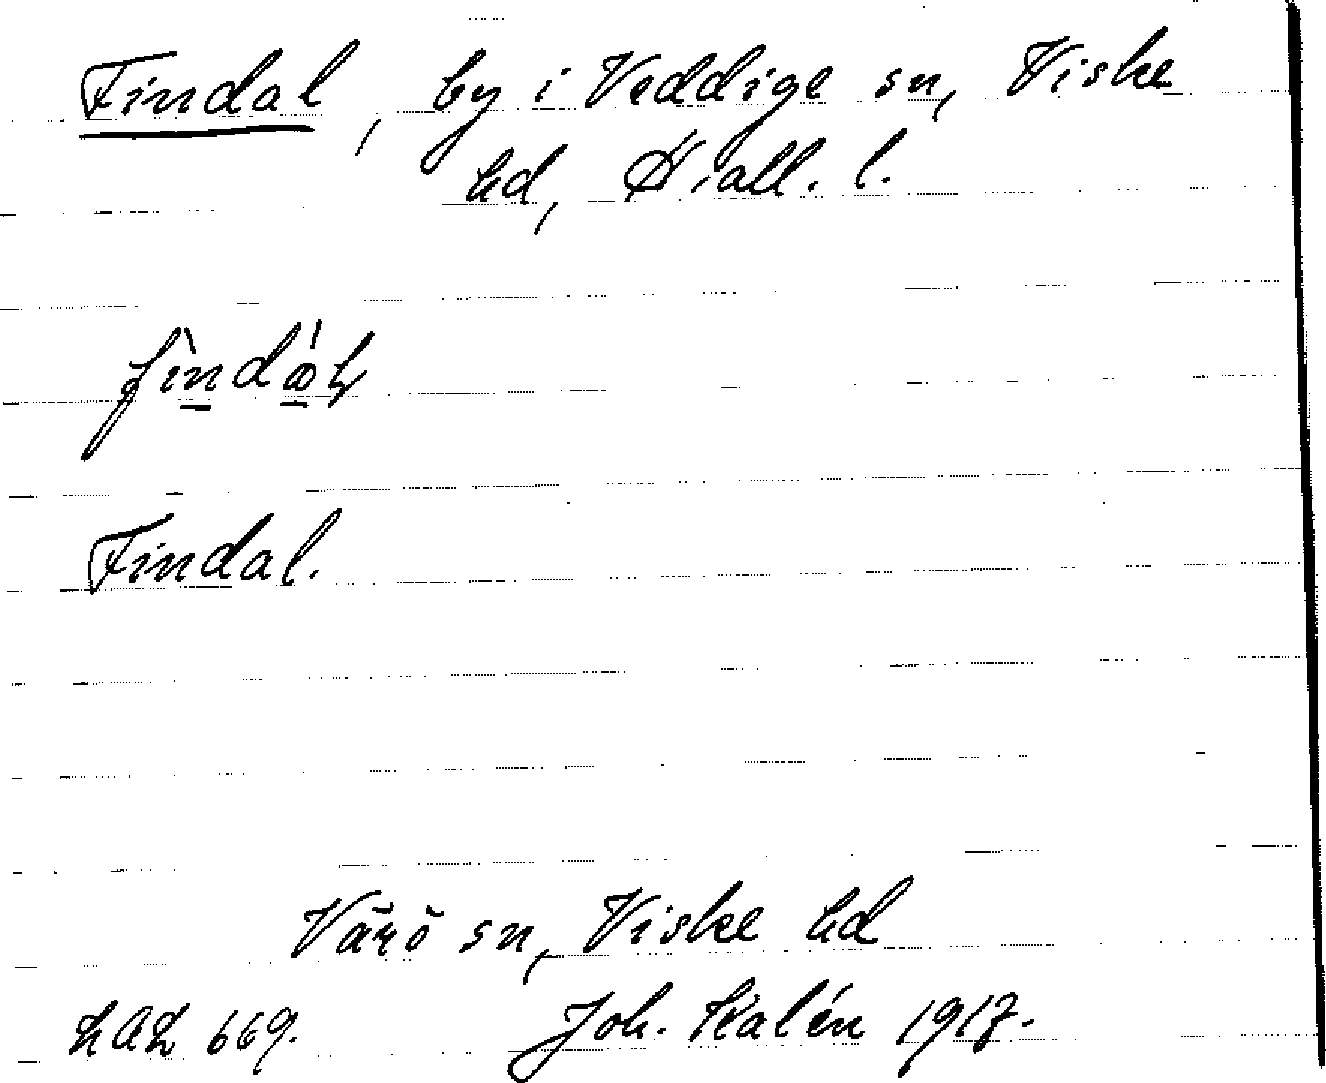 Findal, by i Veddige sn, Viske
hd, Hall. l.
Findal.
Värö sn, Viske hd
LAL 669. Joh. Kalén 1917.